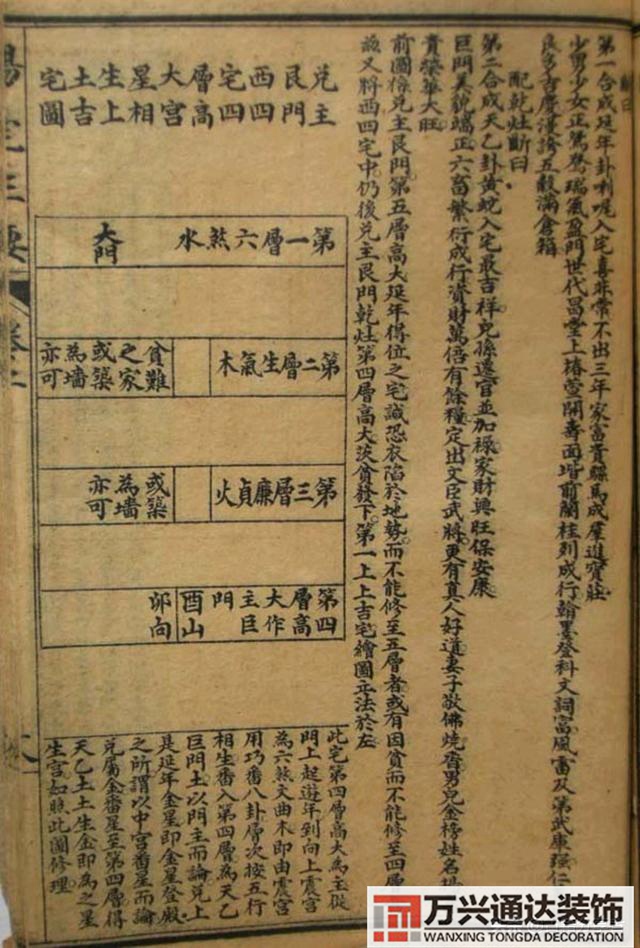 第一合成延年卦喇呢入宅喜非常不出三年家富貴騾馬成羣進寶莊
少男少女正鴛鴦瑞氣盈門世代昌堂上椿萱開壽面堦前蘭桂列成行翰墨登科文詞富風雷及第武庫强仁
良多吉慶漫誇五穀滿倉箱
配乾灶斷曰
第二合成天乙卦黃蛇入宅最吉祥兒孫還官並加祿家財興旺保安康
巨門美貌端正六畜繁衍成行資財萬倍有餘糧定出文臣武將更有真人好道妻子敬佛燒香男兒金榜姓名揚
貴榮華大旺
前圖係兌主艮門第五層高大延年得位之宅誠恐衣陷於地勢而不能修至五層者或有因貧而不能修至四層
故又將西四宅中仍後兌主艮門乾灶第四層高大茨貧發下第一上上吉宅繪圖立法於左
兌主
艮門
西四
宅四
層高
大宮
星相
生上
土吉
宅圖
第一層六煞水
大門
第二層生氣木
貧難之家或築為墻亦可
第三層廉貞火
或築為墻亦可
第四層高大作主巨門
酉山
卯向
此宅第四層高大為主從
門上起遊年到向上震宮
為六煞文曲木即由震宮
用巧番八卦層次按五行
相生番入第四層為天乙
巨門土以門主而論兌上
是延年金星即金星登殿
之所謂以中宮番星而論
兌屬金番星至第四層得
天乙土土生金即為之星
生宮如照此圖修理
陽宅三要
卷二
万兴通达装饰
WANXING TONGDA DECORATION